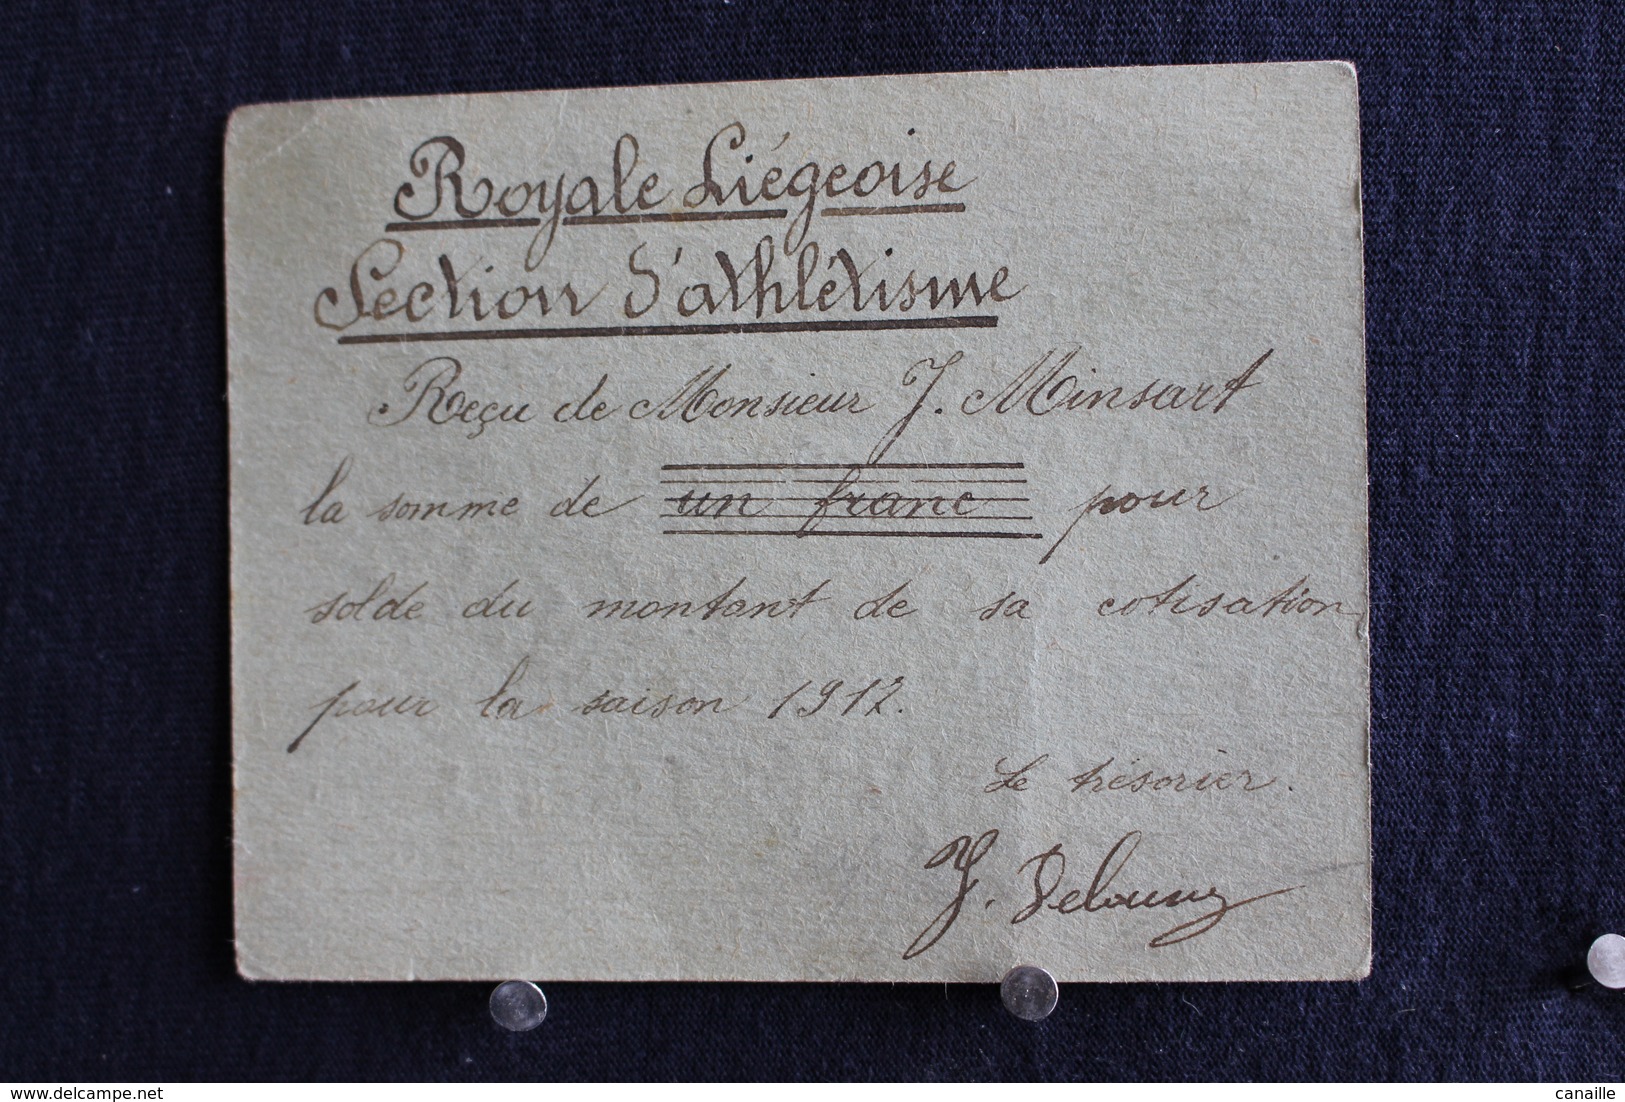 Royale Liégeoise
Section d'athlétisme
Reçu de Monsieur J. Minsart
la somme de un franc pour
solde du montant de sa cotisation
pour la saison 1912.
Le trésorier.
J.
delcampe.net
canaille